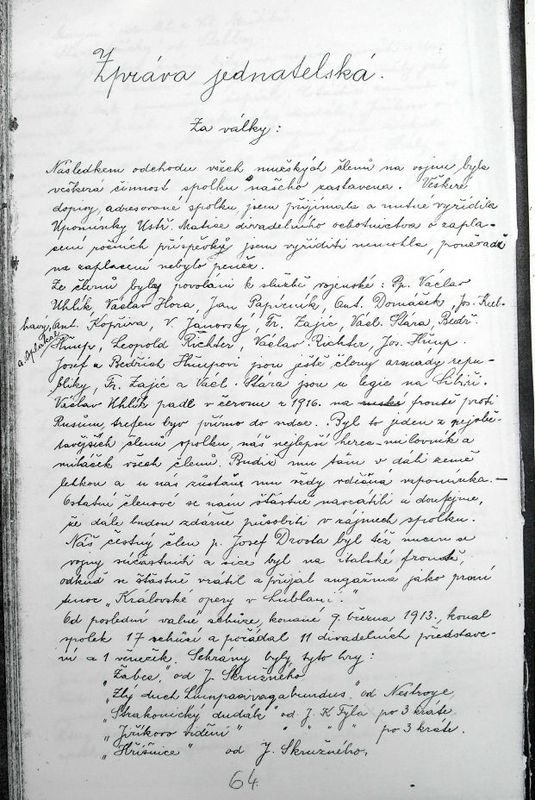 Zpráva jednatelská.
Za války:
Následkem odchodu všech mužských členů na vojnu byla
veškerá činnost spolku našeho zastavena. Veškeré
dopisy, adresované spolku jsem přijímala a nutné vyřídila
Upomínky Ústř. Matice divadelního ochotnictva o zapla-
cení ročních příspěvků jsem vyříditi nemohla, poněvadž
na zaplacení nebylo peněz.
Ze členů byly povoláni k službě vojenské: Pp. Václav
Uhlík, Václav Hora, Jan Papírník, Ant. Domášek, Jos.
Ant. Kopřiva, V. Janovský, Fr. Zajíc, Václ. Stára, Bedř.
Leopold Richter, Václav Richter, Jos.
Josef a Bedřich jsou ještě členy armády repu-
bliky, Fr. Zajíc a Václ. Stára jsou u legie na Sibiři.
Václav Uhlík padl v červnu r. 1916. na ruské frontě proti
Rusům, trefen byv přímo do srdce. Byl to jeden z nejobě-
tavějších členů spolku, náš nejlepší herec-milovník a
miláček všech členů. Budiž mu tam v dáli země
lehkou a u nás zůstaň mu vždy vděčná vzpomínka. –
Ostatní členové se nám šťastně navrátili a doufejme,
že dále budou zdárně působiti v zájmech spolku.
Náš čestný člen p. Josef Drosta byl též nucen se
vojny súčastniti a sice byl na italské frontě,
odkud se šťastně vrátil a přijal angažmá jako první
tenor „Královské opery v Lublani."
Od poslední valné schůze, konané 9. března 1913., konal
spolek 17 schůzí a pořádal 11 divadelních představe-
ní a 1 věneček. Sehrány byly tyto hry:
„Žabec," od J. Skružného
„Zlý duch Lumpacivagabundus", od Nestroye,
„Strakonický dudák" od J. K. Tyla po 3 kráte.
„Jiříkovo vidění" " " " " po 3 kráte.
„Hříšnice" od J. Skružného,
64.